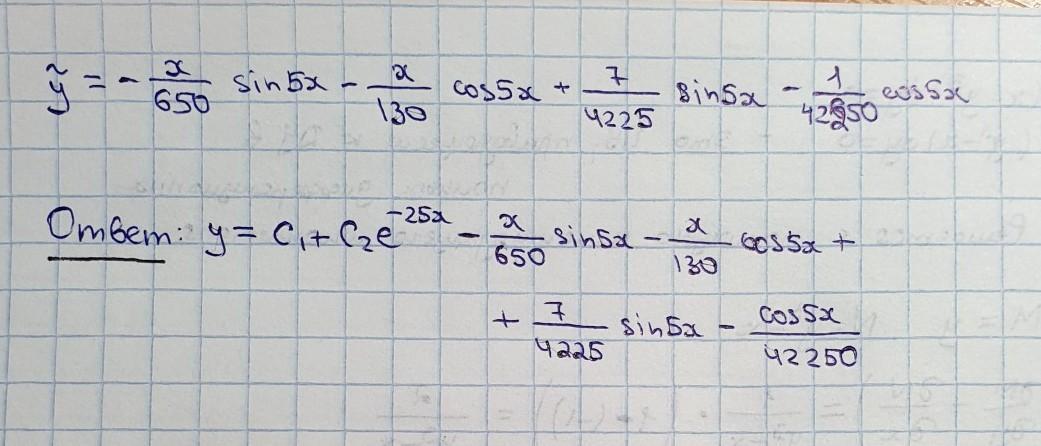 ỹ = - x/650 sin5x - x/130 cos5x + 7/4225 sin5x - 1/42250 cos5x
Ответ: y = C₁ + C₂e^(-25x) - x/650 sin5x - x/130 cos5x +
+ 7/4225 sin5x - cos5x/42250